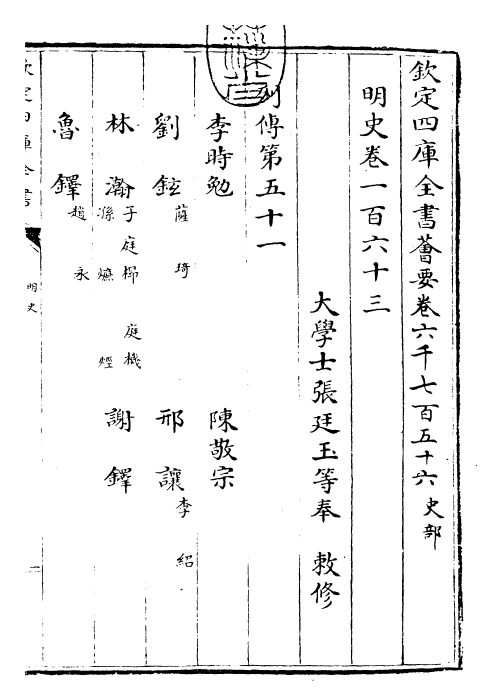 欽定四庫全書薈要卷六千七百五十六史部
明史卷一百六十三
大學士張廷玉等奉敕修
列傳第五十一
李時勉 陳敬宗
劉鉉薩琦 邢讓李紹
林瀚子庭㭿 庭機 孫燫 烴 謝鐸
魯鐸趙永
欽定四庫全書
明史
一